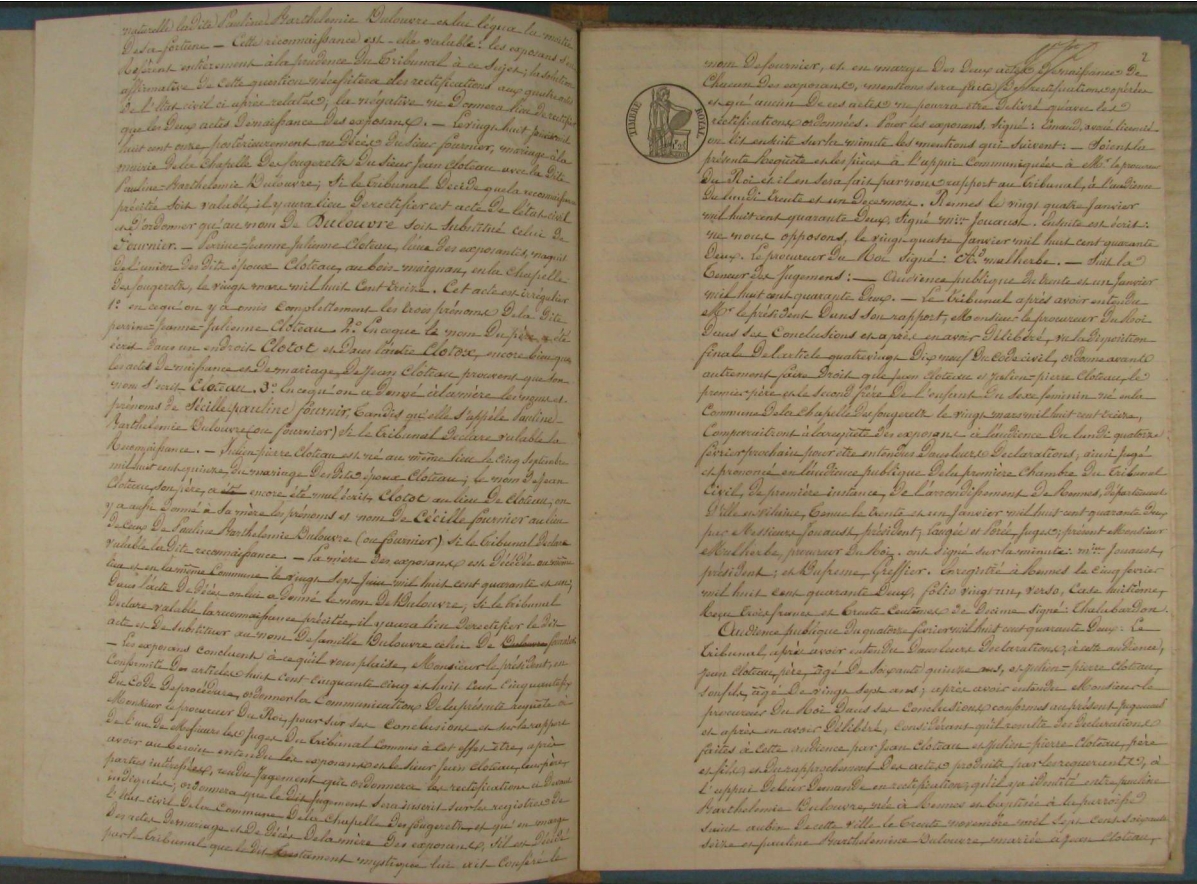 naturelle la dite Pauline Barthelemie Dulouvre et lui légua la moitié
De sa fortune — Cette reconnaissance est-elle valable: les exposans s'en
Réfèrent entièrement à la prudence Du Tribunal à ce sujet; la solution
affirmative De cette question nécessitera des rectifications aux quatre actes
De l'Etat civil ci après relatés; la négative ne Donnera lieu De rectifier
que les Deux actes De naissance Des exposans. — Le vingt huit
huit cent onze, postérieurement au Décès Du sieur fournier, mariage à la
mairie De la Chapelle Des fougeretz Du sieur Jean Cloteau avec la Dite
Pauline-Barthelemie Dulouvre; Si le tribunal Décide que la reconnaissance
précitée soit valable, il y aura lieu De rectifier cet acte De l'état civil
et D'ordonner qu'au nom De Dulouvre soit Substitué celui De
fournier. — Perine-Jeanne Julienne Cloteau, l'une Des exposantes, naquit
De l'union Des Dits époux Cloteau, au bois maignan, en la Chapelle
Des fougeretz, le vingt mars mil huit Cent treize. Cet acte est irrégulier
1.° en ce qu'on y a omis complettement les trois prénoms De la Dite
perrine-Jeanne-Julienne Cloteau 2.° En ce que le nom Du père a été
écrit Dans un endroit Clotot et Dans l'autre Clotox, encore bien que
les actes De naissance et De mariage, De Jean Cloteau prouvent que son
nom s'écrit Cloteau. 3.° En ce qu'on a Donné à la mère les noms et
prénoms De Sécille pauline fournier, tandis qu'elle s'appèle Pauline
Barthélemie Dulouvre (ou fournier) si le tribunal Déclare valable la
Reconnaissance. — Julien pierre Cloteau est né au même lieu le Cinq Septembre
mil huit cent quinze, Du mariage Des Dits époux Cloteau; le nom De Jean
Cloteau, son père, a été encore été mal écrit, Clotot au lieu De Cloteau; on
y a aussi Donné à sa mère les prénoms et nom De Cécille fournier au lieu
De Ceux De Pauline Barthelemie Dulouvre (ou fournier) si le tribunal Déclare
valable la Dite reconnaissance — La mère Des exposans est Décédée au même
lieu et en la même Commune le vingt Sept Juin mil huit cent quarante et un;
Dans l'acte De Décès on lui a Donné le nom De Dulouvre; si le tribunal
Déclare valable la reconnaissance précitée, il y aura lieu De rectifier le Dit
acte et De substituer au nom De famille Dulouvre celui De
— Les exposans concluent à ce qu'il vous plaise, Monsieur le président, en
Conformité Des articles huit cent Cinquante cinq et huit Cent Cinquante six
Du Code De procédure, ordonner la Communication De la présente requête à
Monsieur le procureur Du Roi, pour sur ses Conclusions et sur le rapport
De l'un De Messieurs les Juges Du tribunal Commis à Cet effet être, après
avoir au besoin entendu les exposans et le sieur Jean Cloteau, leur père,
parties intéressées, rendu Jugement qui ordonnera les rectifications ci Dessus
indiquées; ordonnera que le Dit Jugement Sera inscrit sur les registres De
l'Etat civil De la Commune De la Chapelle Des fougeretz, et qu'en marge
Des actes De mariage et De Décès De la mère Des exposans, s'il est Décidé
par le tribunal que le Dit testament mystique lui ait Conféré le
2
nom De fournier, et en marge Des Deux actes De naissance De
Chacun Des exposans, mentions sera faite Des rectifications opérées
et qu'aucun De ces actes ne pourra être Délivré qu'avec les
rectifications ordonnées. Pour les exposans, signé: avoué licencié
on lit ensuite sur la minute les mentions qui suivent: — Soient la
présente Requête et les pièces à l'appui Communiquées à Mr. le procureur
Du Roi et il en sera fait par nous rapport au tribunal, à l'audience
Du lundi trente et un De ce mois. Rennes le vingt quatre Janvier
mil huit cent quarante Deux, Signé Mtin. Jouaust. Ensuite est écrit:
ne nous opposons, le vingt quatre Janvier mil huit cent quarante
Deux. Le procureur Du Roi Signé: Ad. malherbe. — Suit la
teneur Des Jugemens: — Audience publique Du trente et un Janvier
mil huit cent quarante Deux. — Le tribunal après avoir entendu
Mr. le président Dans son rapport, Monsieur le procureur Du Roi
Dans ses Conclusions et après en avoir Délibéré, vu la Disposition
finale De l'article quatre vingt Dix neuf Du Code civil, ordonne avant
autrement faire Droit que Jean Cloteau et Julien-pierre Cloteau, le
premier père et le second frère De l'enfant Du sexe féminin né en la
Commune De la Chapelle Des fougeretz le vingt mars mil huit cent treize,
Comparaîtront à la requête Des exposans à l'audience Du lundi quatorze
février prochain pour être entendus Dans leurs Déclarations; ainsi jugé
et prononcé en l'audience publique De la première Chambre Du tribunal
Civil, De première instance, De l'arrondissement De Rennes, Département
D'Ille et vilaine, tenue le trente et un Janvier mil huit cent quarante Deux
par Messieurs Jouaust, président, tangé et Porée, Juges; présent Monsieur
Malherbe, procureur Du Roi. ont signé sur la minute: Mtin. Jouaust,
président; et Dufresne, Greffier. Enregistré à Rennes le Cinq février
mil huit cent quarante Deux, folio vingt un, verso, Case huitième,
Reçu trois francs et trente Centimes De Décime Signé: Chalabardon.
Audience publique Du quatorze février mil huit cent quarante Deux: Le
tribunal, après avoir entendu Dans leurs Déclarations, à cette audience,
Jean Cloteau, père, âgé De soixante quinze ans, et Julien-pierre Cloteau,
son fils, âgé De vingt sept ans; après avoir entendu Monsieur le
procureur Du Roi Dans ses Conclusions conformes au présent Jugement
et après en avoir Délibéré, Considérant qu'il résulte Des Déclarations
faites à cette audience par Jean Cloteau et Julien-pierre Cloteau, père
et fils, et Du rapprochement Des actes produits par les requérants, à
l'appui De leur Demande en rectification, qu'il y a identité entre pauline
Barthelemie Dulouvre, née à Rennes et baptisée à la paroisse
saint aubin De cette ville le trente novembre mil sept cent soixante
seize et pauline Barthelemie Dulouvre mariée à Jean Cloteau,
TIMBRE ROYAL